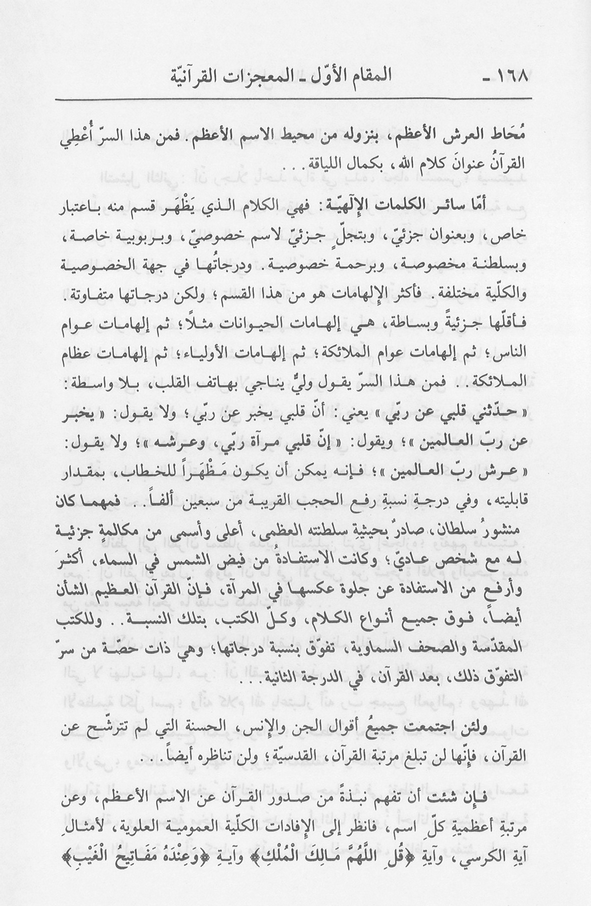 ١٦٨ - المقام الأوّل - المعجزات القرآنيّة
مُحَاط العرش الأعظم، بنزوله من محيط الاسم الأعظم. فمن هذا السرّ أُعْطِي
القرآنُ عنوانَ كلام الله، بكمال اللياقة...
أمّا سائر الكلمات الإلٰهيّة: فهي الكلام الذي يَظْهَر قسم منه باعتبار
خاص، وبعنوان جزئيّ، وبتجلّ جزئيّ لاسم خصوصيّ، وبربوبية خاصة،
وبسلطنة مخصوصة، وبرحمة خصوصية. ودرجاتُها في جهة الخصوصية
والكلّية مختلفة. فأكثر الإلهامات هو من هذا القسم؛ ولكن درجاتها متفاوتة.
فأقلّها جزئيةً وبساطة، هي إلهامات الحيوانات مثلاً؛ ثم إلهامات عوام
الناس؛ ثم إلهامات عوام الملائكة؛ ثم إلهامات الأولياء؛ ثم إلهامات عظام
الملائكة.. فمن هذا السرّ يقول وليٌّ يناجي بهاتف القلب، بلا واسطة:
«حدّثني قلبي عن ربّي» يعني: أنّ قلبي يخبر عن ربّي؛ ولا يقول: «يخبر
عن ربّ العالمين»؛ ويقول: «إنّ قلبي مرآة ربّي، وعرشه»؛ ولا يقول:
«عرش ربّ العالمين»؛ فإنه يمكن أن يكون مَظْهَراً للخطاب، بمقدار
قابليته، وفي درجةِ نسبةِ رفع الحجب القريبة من سبعين ألفاً.. فمهما كان
منشورُ سلطان، صادرٌ بحيثيةِ سلطنته العظمى، أعلى وأسمى من مكالمةٍ جزئية
له مع شخص عاديّ؛ وكانت الاستفادةُ من فيض الشمس في السماء، أكثرَ
وأرفع من الاستفادة عن جلوة عكسها في المرآة، فإنّ القرآن العظيم الشأن
أيضاً، فوق جميع أنواع الكلام، وكلّ الكتب، بتلك النسبة.. وللكتب
المقدّسة والصحف السماوية، تفوّق بنسبة درجاتها؛ وهي ذات حصّة من سرّ
التفوّق ذلك، بعد القرآن، في الدرجة الثانية....
ولئن اجتمعت جميعُ أقوال الجن والإنس، الحسنة التي لم تترشّح عن
القرآن، فإنّها لن تبلغ مرتبة القرآن، القدسيّة؛ ولن تناظره أيضاً...
فإن شئت أن تفهم نبذةً من صدور القرآن عن الاسم الأعظم، وعن
مرتبةِ أعظميةِ كلّ اسم، فانظر إلى الإفادات الكلّية العمومية العلوية، لأمثالِ
آيةِ الكرسي، وآيةِ ﴿قُلِ اللَّهُمَّ مَالِكَ الْمُلْكِ﴾ وآيةِ ﴿وَعِنْدَهُ مَفَاتِيحُ الْغَيْبِ﴾